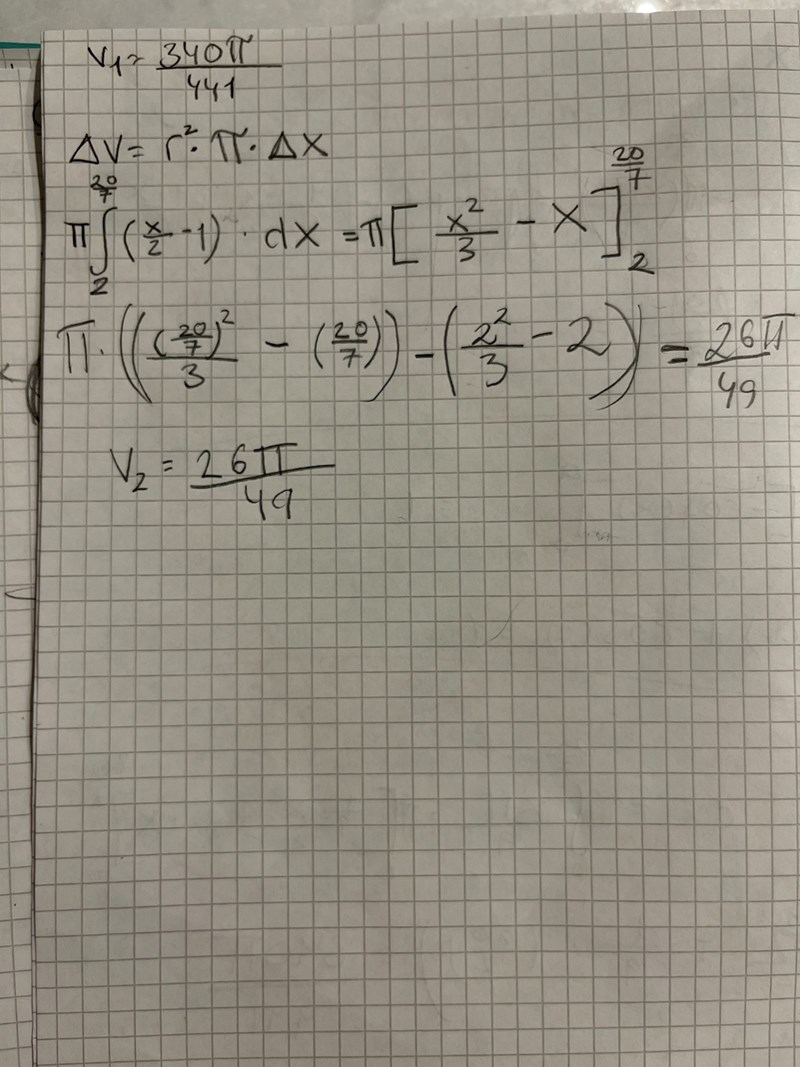 V₁ = 340π/441
ΔV = r² · π · Δx
π ∫₂^(20/7) (x/2 - 1) · dx = π [x²/3 - x]₂^(20/7)
π · (((20/7)²/3 - (20/7)) - (2²/3 - 2)) = 26π/49
V₂ = 26π/49